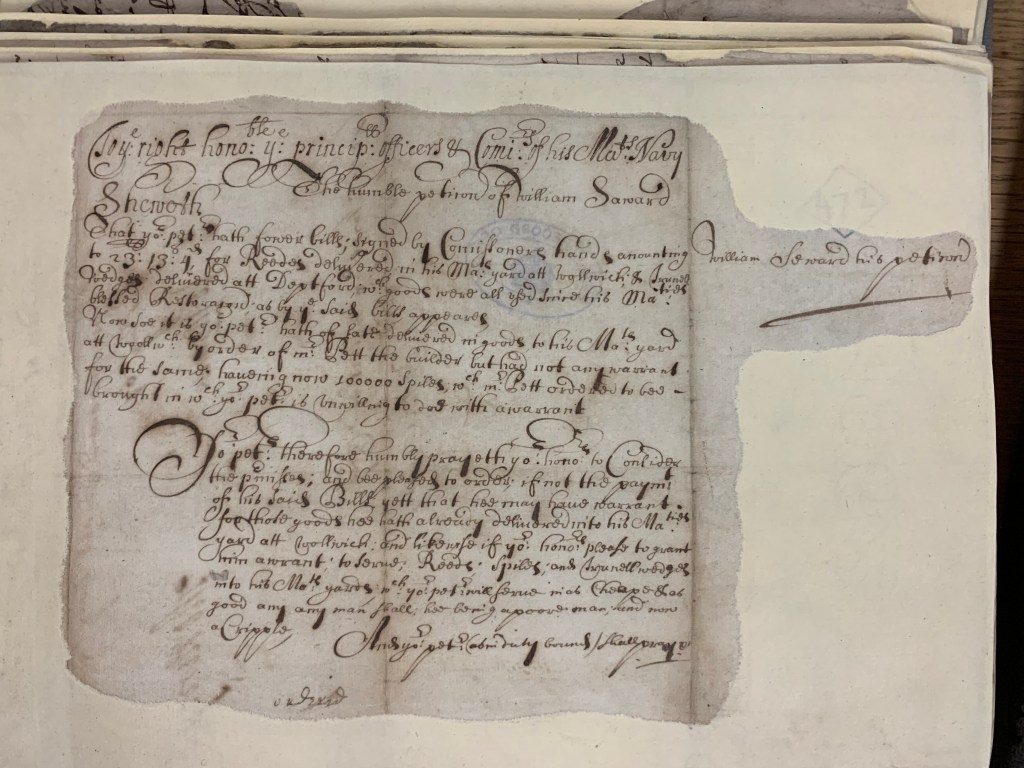 To ye: right hono:ble ye: princip:ll officers & Comi:rs of his Mats: Navy
The humble petition of William Saward
Sheweth
That yor: pet:r hath fower bills, signed by Comissioners hands amounting
to 23: 13: 4: for Reedes delivered in his Mats: yard att Wollwich, & Trunell
wedges delivered att Deptford wch: goods were all used since his Ma:ties
blessed Restoration, as by ye said bills appeares
Now soe it is yor: pet:r hath of late delivered in goods to his Mats: yard
att Wollwch: by order of mr: Pett the builder but had not any warrant
for the same: haveing now 100000 Spiles, wch mr: Pett ordered to bee -
brought in wch: yor: pet:r is unwilling to doe with a warrant
Yor: pet:r: therefore humbly prayeth yor: honors: to Consider
the pmisses; and bee pleased to order, if not the paymt
of his said Bills yett that hee may have warrant
for those goods hee hath already delivered into his Ma:ties
yard att Wollwich; and likewise if yor: honors: please to grant
him a warrant, to serve, Reeds, Spiles, and Trunellwedges
into his Mats: yards, wch: yor: petr: will serve in as Cheape & as
good any any man shall, hee being a poore man, and now
a Cripple
And yor: pet:r: (as in duty bound) shall pray &c
William Seward his petition